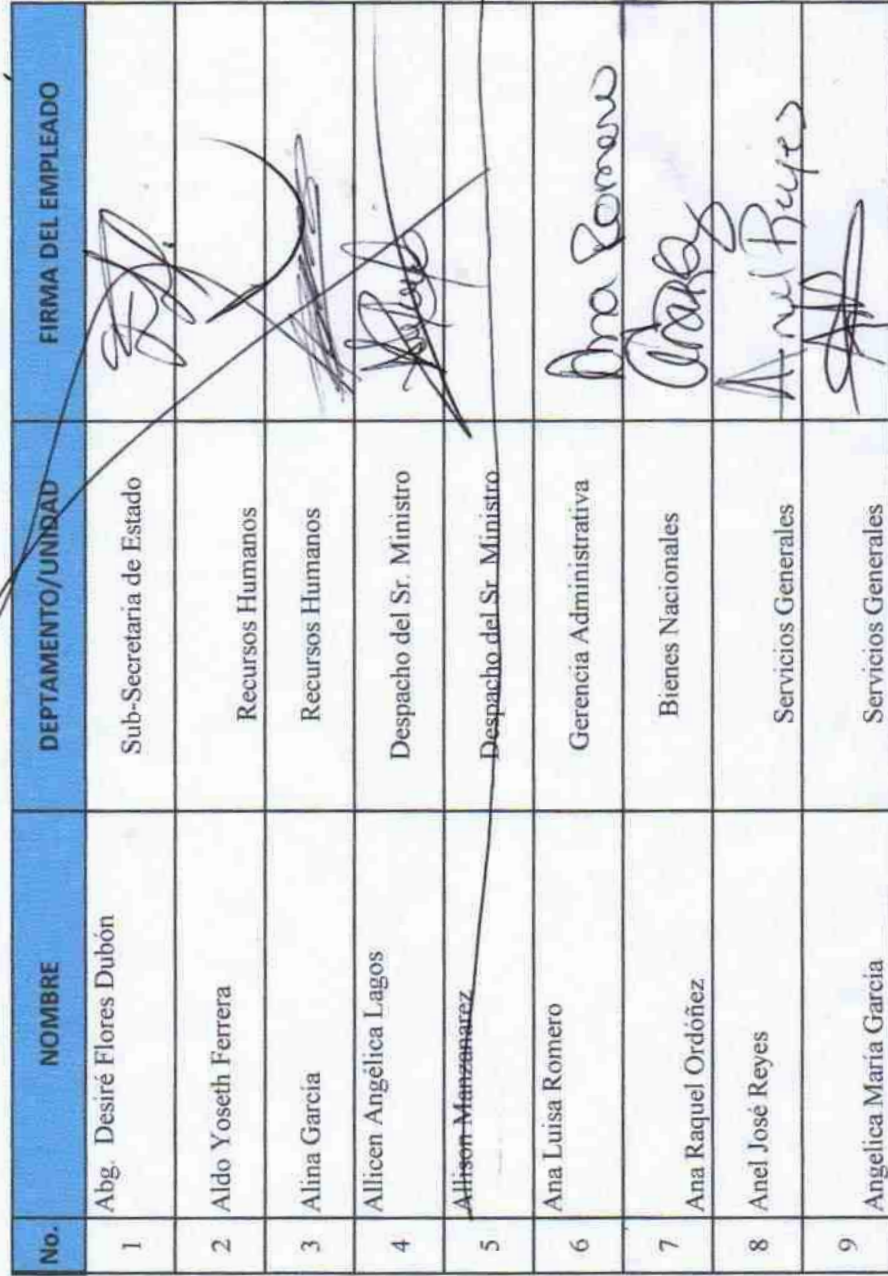 No. NOMBRE DEPTAMENTO/UNIDAD FIRMA DEL EMPLEADO
1 Abg. Desiré Flores Dubón Sub-Secretaria de Estado
2 Aldo Yoseth Ferrera Recursos Humanos
3 Alina Garcia Recursos Humanos
4 Allicen Angélica Lagos Despacho del Sr. Ministro
5 Allison Manzanarez Despacho del Sr. Ministro
6 Ana Luisa Romero Gerencia Administrativa Ana Romero
7 Ana Raquel Ordóñez Bienes Nacionales
8 Anel José Reyes Servicios Generales Anel Reyes
9 Angelica María Garcia Servicios Generales